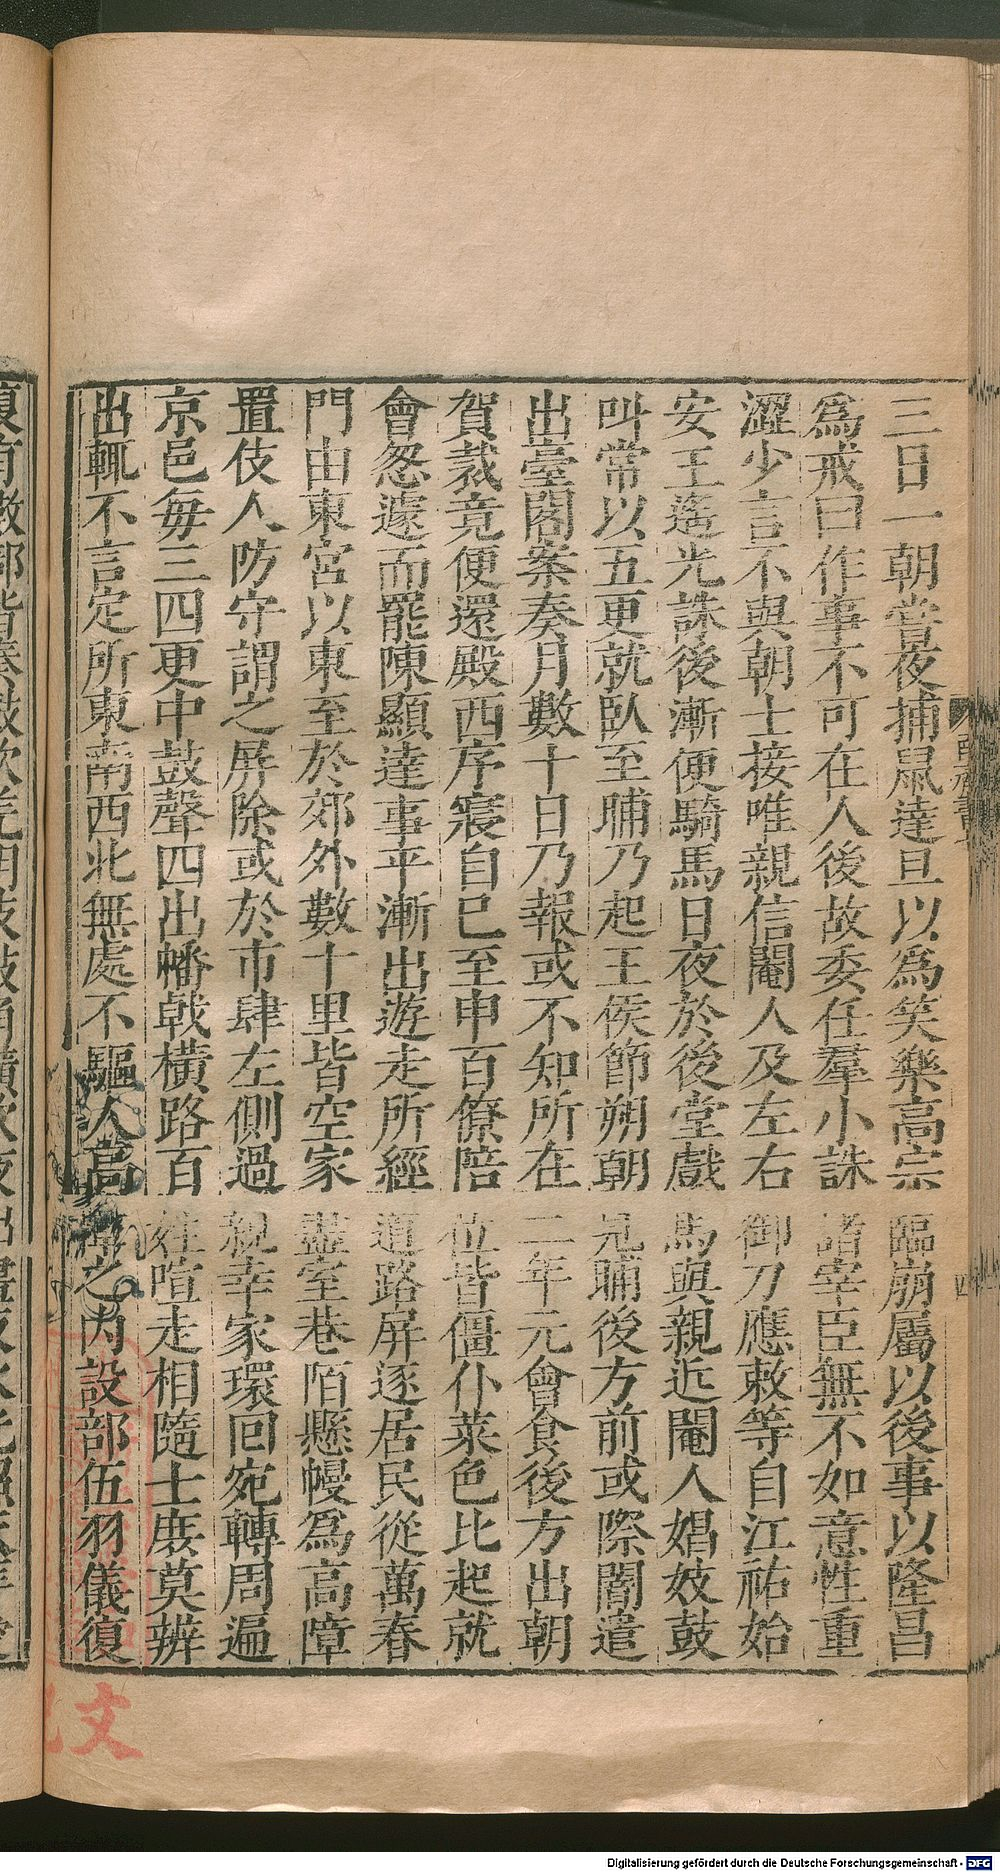 三日一朝嘗夜捕鼠達旦以爲笑樂高宗臨崩屬以後事以隆昌
爲戒曰作事不可在人後故委任羣小誅諸宰臣無不如意性重
澀少言不與朝士接唯親信閹人及左右御刀應敕等自江祐始
安王遙光誅後漸便騎馬日夜於後堂戲馬與親近閹人娼妓鼓
叫常以五更就臥至晡乃起王侯節朔朝見晡後方前或際闇遣
出臺閣案奏月數十日乃報或不知所在二年元會食後方出朝
賀裁竟便還殿西序寢自巳至申百僚陪位皆僵仆菜色比起就
會怱遽而罷陳顯達事平漸出遊走所經道路屏逐居民從萬春
門由東宮以東至於郊外數十里皆空家盡室巷陌懸幔爲高障
置伎人防守謂之屏除或於市肆左側過親幸家環回宛轉周遍
京邑每三四更中鼓聲四出幡戟橫路百姓喧走相隨士庶莫辨
出輒不言定所東南西北無處不驅人高之內設部伍羽儀復
四
文
Digitalisierung gefördert durch die Deutsche Forschungsgemeinschaft - DFG